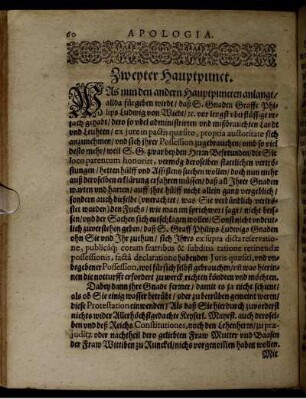 60 APOLOGIA.
Zweyter Hauptpunct.
WAs nun den andern Hauptpuncten anlangt/
allda fürgeben wirdt/ daß S. Gnaden Graffe Phi-
lips Ludwig von Wiedt/ ꝛc. vor längst überflüssige vr-
sach gehabt/ dero so übel administrirten vnd mißbrauchten Landt
vnd Leuthen/ ex jure in pactis quæsito, propria authoritate sich
anzunehmen/ vnd sich jhrer Possession zugebrauchen/ vnd so viel
desto mehr/ weil S. G. zwar bey den Herrn Befreundten/ die Sie
loco parentum honorirt, vermög deroselben stattlichen vertrö-
stungen/ hetten hülff vnd Assistentz suchen wollen/ doch nun nicht
auß deroselben erklärung erfahren müssen/ daß all Ihrer Gnaden
warten vnd harren/ auff jhre hülff nicht allein gantz vergeblich/
sondern auch dieselbe (vnerachtet/ was Sie verbündtlich vertrö-
stet worden) den Fuchs/ wie man im sprichwort sagt/ nicht beissen/
vnd der Sachen sich nicht anlegen wollen: Sonst nicht vndeut-
lich zuverstehen geben/ daß S. Graff Philips Ludwigs Gnaden
ohn Sie vnd Ihr zuthun/ sich Ihres ex supra dicta reservatio-
ne, publicâq; coram fratribus & subditis ratione retinendæ
possessionis, factâ declaratione habenden Juris quæsiti, vnd vn-
begebener Possession, wol fürsich selbst gebrauchen/ vnd wie jhnen
die notturfft erfordert zu werck richten köndten vnd möchten.
Dabey dann jhre Gnade ferner/ damit es ja nicht scheine/
als ob Sie einig wasser betrübt/ oder zu betrüben gemeinet weren/
diese Protestation einwendet/ Als daß Sie hierdurch zuvorderst
nichts wider Allerhöchstgedachte Keyserl. Mayest. auch derosel-
ben vnd deß Reichs Constitutiones, noch den Lehenherrn/ zu præ-
juditz oder nachtheil dero geliebten Fraw Mutter vnd Baasen
der Fraw Wittiben zu Runckel/ nichts vorgenommen haben wollen.
Mit